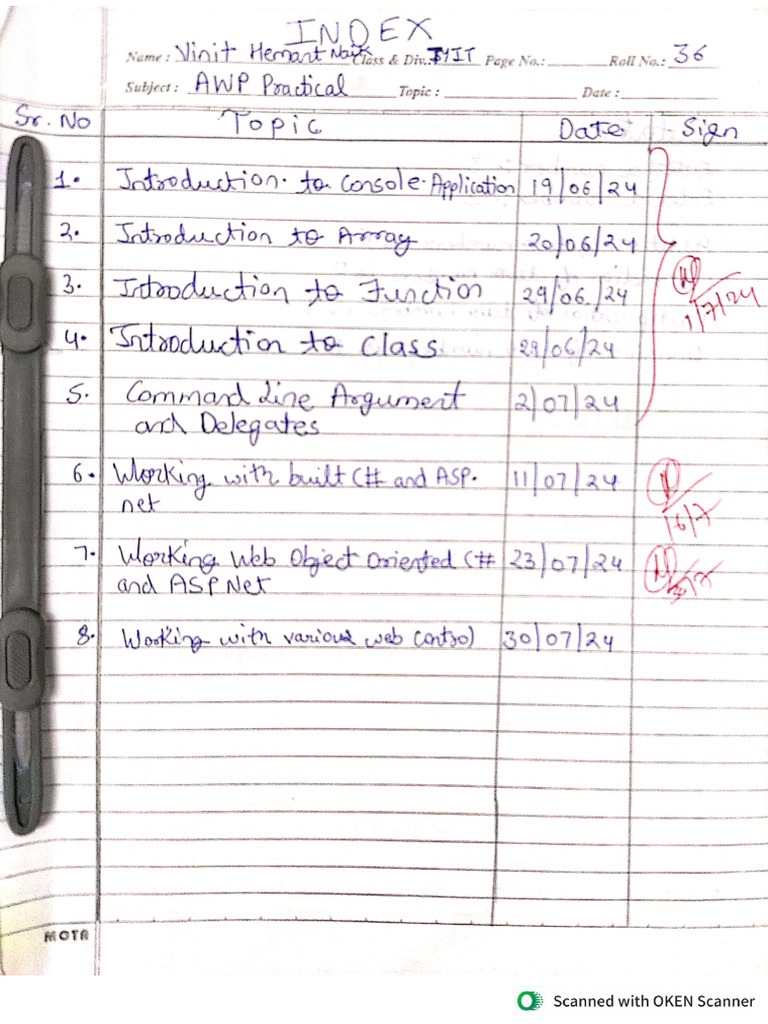 INDEX
Name : Vinit Hemant Naik Class & Div. TYIT Page No.: Roll No.: 36
Subject : AWP Practical Topic : Date :
Sr. No Topic Date Sign
1. Introduction to Console Application 19/06/24
2. Introduction to Array 20/06/24
3. Introduction to Function 29/06/24
1/7/24
4. Introduction to Class 29/06/24
5. Command Line Argument 2/07/24
and Delegates
6. Working with built C# and ASP. 11/07/24
net
16/7
7. Working Web Object Oriented C# 23/07/24
and ASP Net
8. Working with various web control 30/07/24
MOTA
Scanned with OKEN Scanner